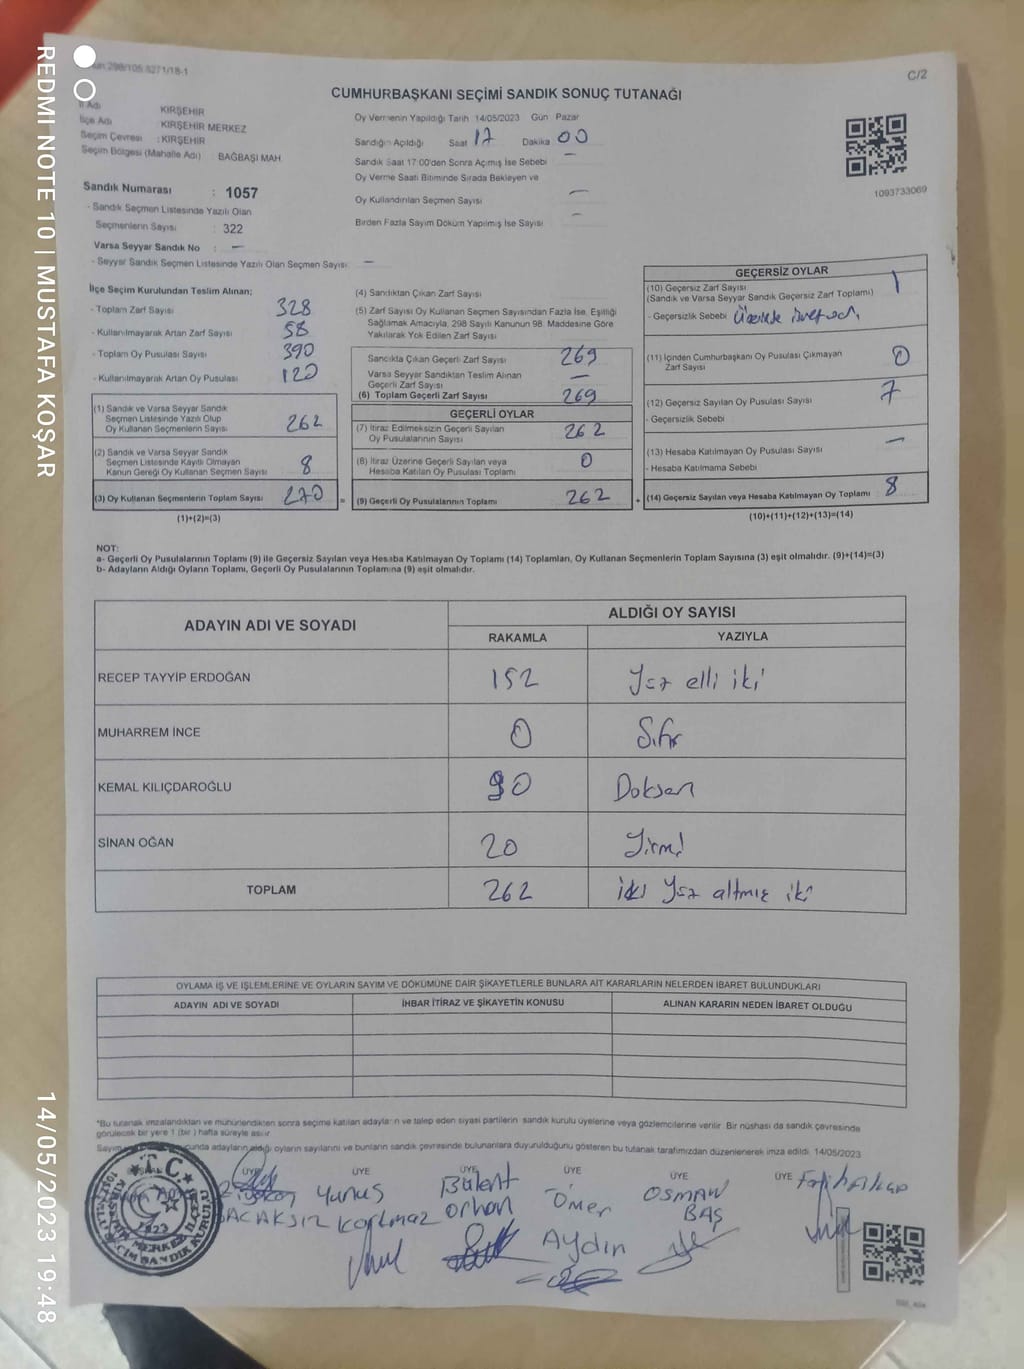 298/105.6271/18-1
C/2
CUMHURBAŞKANI SEÇİMİ SANDIK SONUÇ TUTANAĞI
İl Adı KIRŞEHİR
İlçe Adı : KIRŞEHİR MERKEZ
Seçim Çevresi : KIRŞEHİR
Seçim Bölgesi (Mahalle Adı) : BAĞBAŞI MAH.
Sandık Numarası : 1057
- Sandık Seçmen Listesinde Yazılı Olan
Seçmenlerin Sayısı : 322
Varsa Seyyar Sandık No : —
- Seyyar Sandık Seçmen Listesinde Yazılı Olan Seçmen Sayısı: —
Oy Vermenin Yapıldığı Tarih 14/05/2023 Gün Pazar
Sandığın Açıldığı Saat 17 Dakika 00
Sandık Saat 17:00'den Sonra Açımış İse Sebebi —
Oy Verme Saati Bitiminde Sırada Bekleyen ve
Oy Kullandırılan Seçmen Sayısı —
Birden Fazla Sayım Döküm Yapılmış İse Sayısı —
1093733069
İlçe Seçim Kurulundan Teslim Alınan;
- Toplam Zarf Sayısı 328
- Kullanılmayarak Artan Zarf Sayısı 58
- Toplam Oy Pusulası Sayısı 390
- Kullanılmayarak Artan Oy Pusulası 120
(1) Sandık ve Varsa Seyyar Sandık
Seçmen Listesinde Yazılı Olup
Oy Kullanan Seçmenlerin Sayısı 262
(2) Sandık ve Varsa Seyyar Sandık
Seçmen Listesinde Kayıtlı Olmayan
Kanun Gereği Oy Kullanan Seçmen Sayısı 8
(3) Oy Kullanan Seçmenlerin Toplam Sayısı 270
(1)+(2)=(3)
(4) Sandıktan Çıkan Zarf Sayısı
(5) Zarf Sayısı Oy Kullanan Seçmen Sayısından Fazla İse, Eşitliği
Sağlamak Amacıyla, 298 Sayılı Kanunun 98. Maddesine Göre
Yakılarak Yok Edilen Zarf Sayısı
Sandıkta Çıkan Geçerli Zarf Sayısı 269
Varsa Seyyar Sandıktan Teslim Alınan
Geçerli Zarf Sayısı —
(6) Toplam Geçerli Zarf Sayısı 269
GEÇERLİ OYLAR
(7) İtiraz Edilmeksizin Geçerli Sayılan
Oy Pusulalarının Sayısı 262
(8) İtiraz Üzerine Geçerli Sayılan veya
Hesaba Katılan Oy Pusulası Toplamı 0
= (9) Geçerli Oy Pusulalarının Toplamı 262
GEÇERSİZ OYLAR
(10) Geçersiz Zarf Sayısı 1
(Sandık ve Varsa Seyyar Sandık Geçersiz Zarf Toplamı)
- Geçersizlik Sebebi
(11) İçinden Cumhurbaşkanı Oy Pusulası Çıkmayan
Zarf Sayısı 0
(12) Geçersiz Sayılan Oy Pusulası Sayısı 7
- Geçersizlik Sebebi
(13) Hesaba Katılmayan Oy Pusulası Sayısı —
- Hesaba Katılmama Sebebi
+ (14) Geçersiz Sayılan veya Hesaba Katılmayan Oy Toplamı 8
(10)+(11)+(12)+(13)=(14)
NOT:
a- Geçerli Oy Pusulalarının Toplamı (9) ile Geçersiz Sayılan veya Hesaba Katılmayan Oy Toplamı (14) Toplamları, Oy Kullanan Seçmenlerin Toplam Sayısına (3) eşit olmalıdır. (9)+(14)=(3)
b- Adayların Aldığı Oyların Toplamı, Geçerli Oy Pusulalarının Toplamına (9) eşit olmalıdır.
ADAYIN ADI VE SOYADI
ALDIĞI OY SAYISI
RAKAMLA YAZIYLA
RECEP TAYYİP ERDOĞAN 152 Yüz elli iki
MUHARREM İNCE 0 Sıfır
KEMAL KILIÇDAROĞLU 90 Doksan
SİNAN OĞAN 20 Yirmi
TOPLAM 262 iki Yüz altmış iki
OYLAMA İŞ VE İŞLEMLERİNE VE OYLARIN SAYIM VE DÖKÜMÜNE DAİR ŞİKAYETLERLE BUNLARA AİT KARARLARIN NELERDEN İBARET BULUNDUKLARI
ADAYIN ADI VE SOYADI İHBAR İTİRAZ VE ŞİKAYETİN KONUSU ALINAN KARARIN NEDEN İBARET OLDUĞU
*Bu tutanak imzalandıktan ve mühürlendikten sonra seçime katılan adayların ve talep eden siyasi partilerin sandık kurulu üyelerine veya gözlemcilerine verilir. Bir nüshası da sandık çevresinde
görülecek bir yere 1 (bir) hafta süreyle asılır
adayların aldığı oyların sayılarını ve bunların sandık çevresinde bulunanlara duyurulduğunu gösteren bu tutanak tarafımızdan düzenlenerek imza edildi. 14/05/2023
ÜYE ÜYE ÜYE ÜYE ÜYE ÜYE
Yunus Korkmaz
Bülent Orhan
Ömer Aydın
OSMAN BAŞ
T.C.
REDMI NOTE 10 | MUSTAFA KOŞAR
14/05/2023 19:48